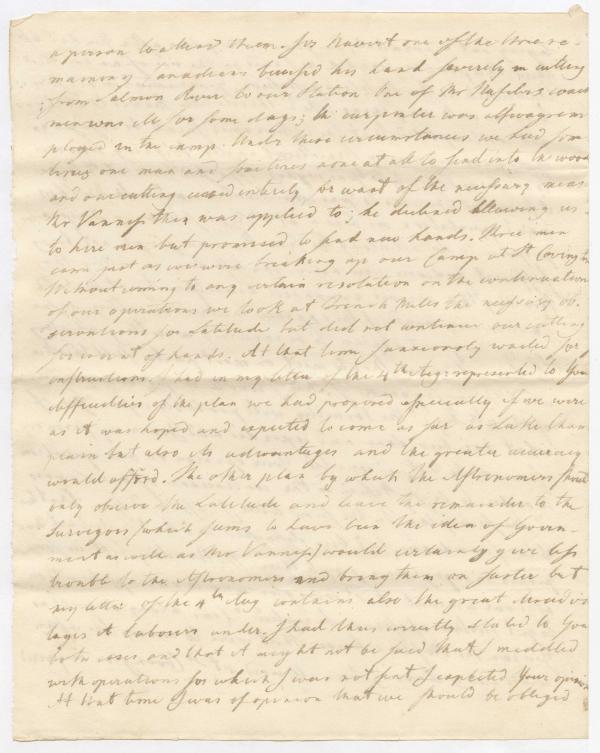 a person to attend them. for Navert one of the two re-
maining Canadians bruised his hand severely in cutting
from Salmon River to our Station One of Mr Hasslers coach
men was ill for some days; the carpenter was always em
ployed in the camp. Under these circumstances we had som
times one man and sometimes none at all to send into the wood
and our cutting ceased intirely for want of the necessary men
Mr Vanness then was applied to; he declined allowing us
to hire men but promised to find new hands. These men
came just as we were breaking up our Camp at St Covington
Without coming to any certain resolution on the continuation
of our operations we took at French Mills the necessary ob-
servations for Latitude but did not continue our cutting
for want of hands. At that time I anxiously waited for
instructions. I had in my letter of the 4th Aug: represented to You
difficulties of the plan we had proposed especially if we were
as it was hoped and expected to come as far as Lake Cham
plain but also its advantages and the greater accuracy
would afford. The other plan by which the Astronomers should
only observe the Latitude and leave the remainder to the
Surveyors (which seems to have been the idea of Govern-
ment as well as Mr Vanness) would certainly give less
trouble to the Astronomers and bring them on faster but
my letter of the 4th Aug contains also the great disadvan
tages it labours under. I had thus correctly stated to You
both cases and that it might not be said that I meddled
with operations for which I was not sent I expected Your opinion
At that time I was of opinion that we should be obliged